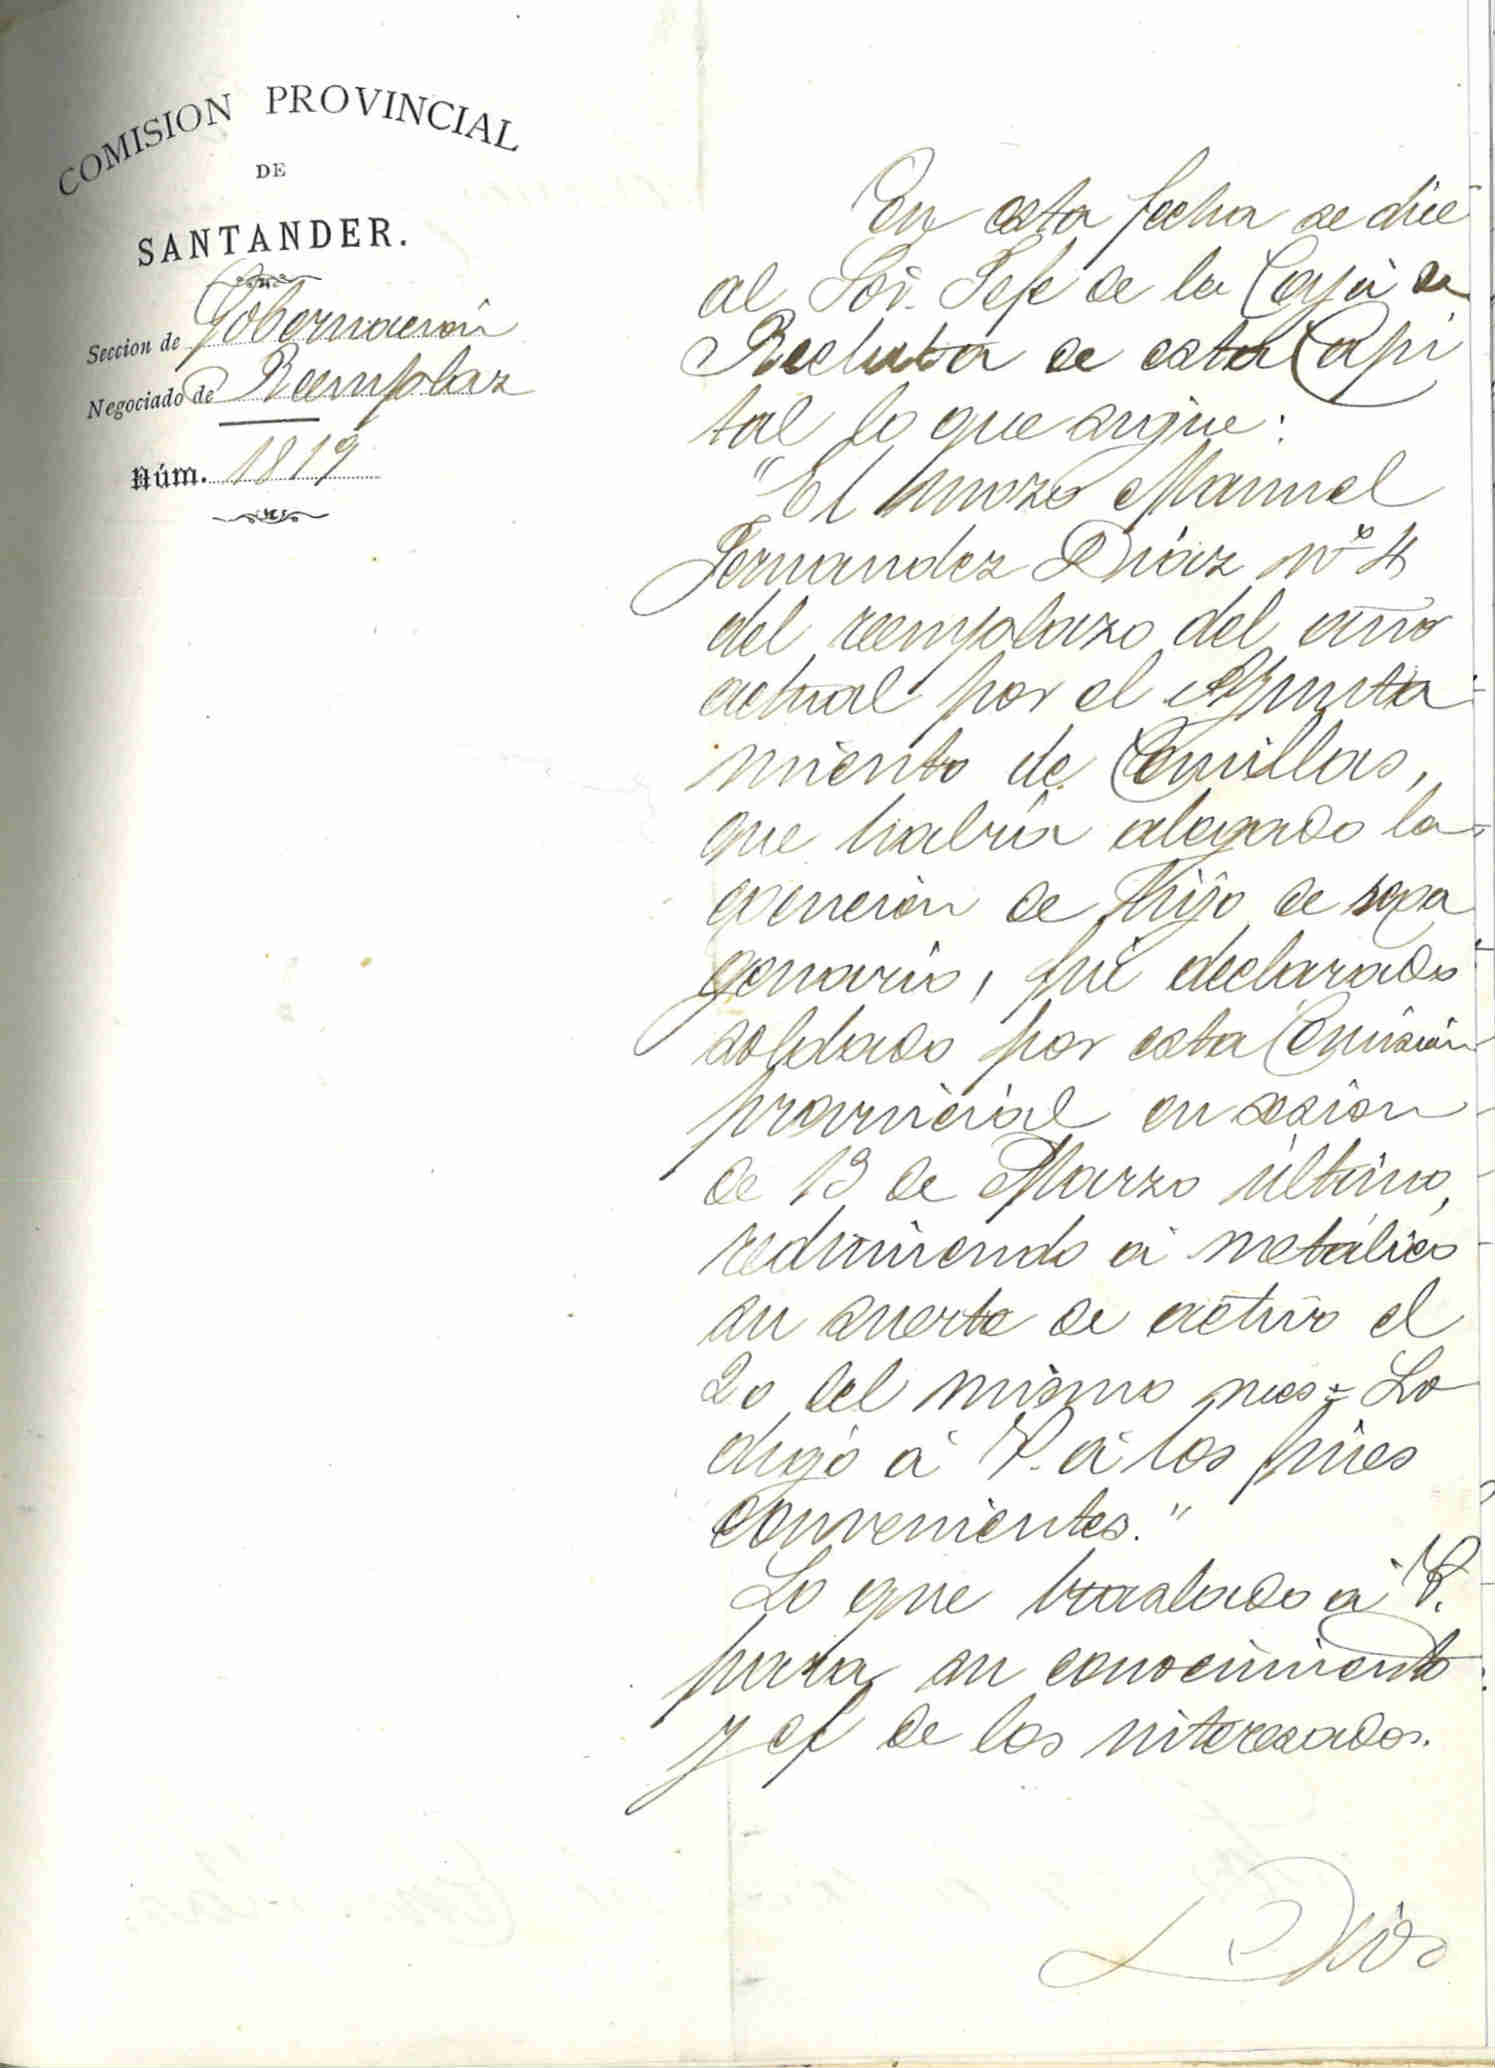 COMISION PROVINCIAL
DE
SANTANDER.
Seccion de Gobernación
Negociado de Reemplaz
Núm. 1819
En esta fecha se dice
al Sor. Jefe de la Caja de
Recluta de esta Capi
tal lo que sigue:
"El mozo Manuel
Fernandez Diaz nº 4
del reemplazo del año
actual por el Ayunta
miento de Comillas,
que habría alegado la
exención de hijo de sexa
genario, fué declarado
soldado por esta Comisión
provincial en sesion
de 13 de Marzo último,
redimiendo á metálico
su suerte de activo el
20 del mismo mes = Lo
digo á V. á los fines
convenientes."
Lo que traslado á V.
para su conocimiento
y el de los interesados.
Dios